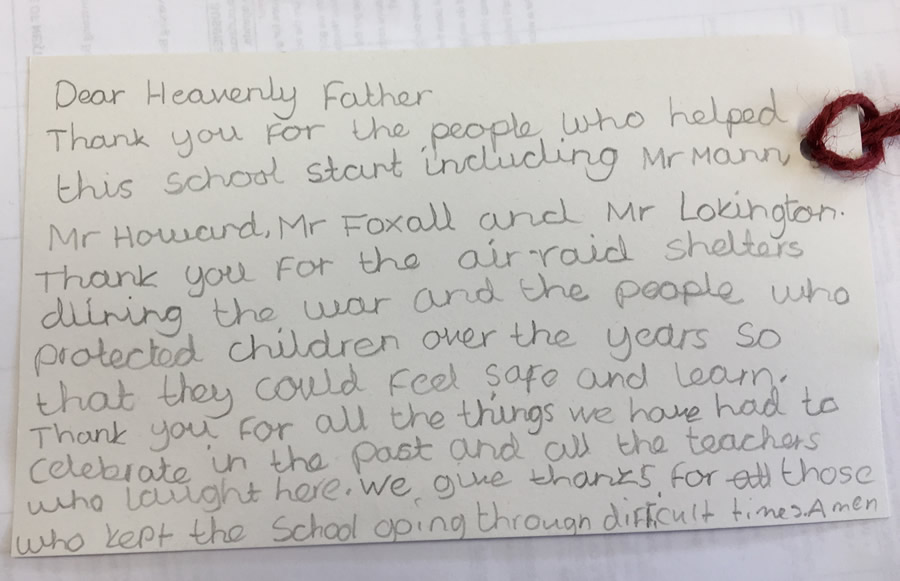 Dear Heavenly Father
Thank you for the people who helped
this school start including Mr Mann,
Mr Howard, Mr Foxall and Mr Lokington.
Thank you for the air-raid shelters
during the war and the people who
protected children over the years so
that they could feel safe and learn.
Thank you for all the things we have had to
celebrate in the past and all the teachers
who taught here. We give thanks for all those
who kept the school going through difficult times. Amen